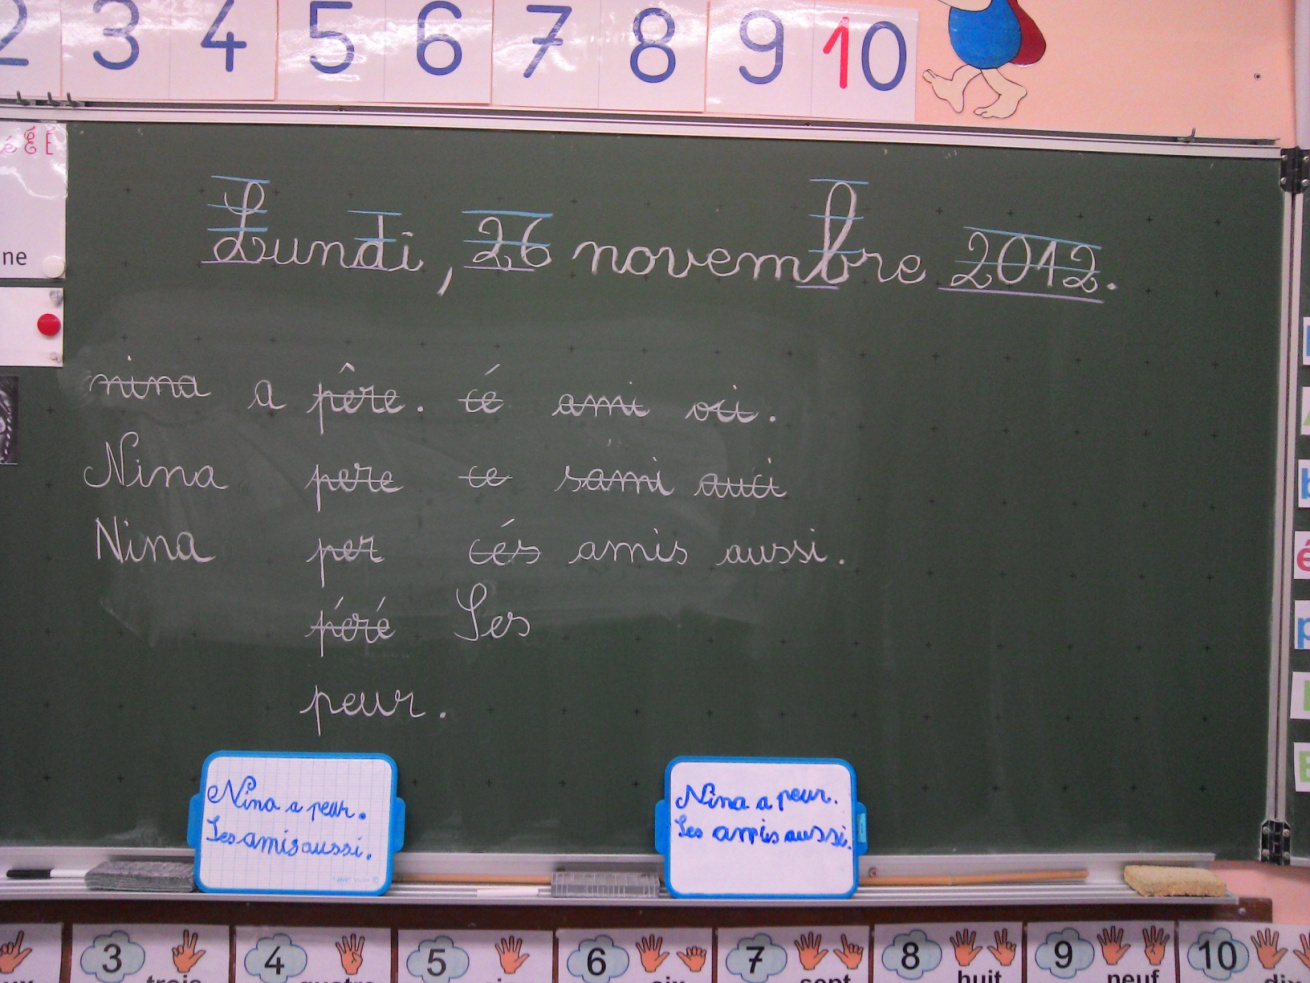 2 3 4 5 6 7 8 9 10
é E
ne
Lundi, 26 novembre 2012.
nina a père. cé ami oci.
Nina pere ce sami auci
Nina per cés amis aussi.
péré Ses
peur.
Nina a peur.
Ses amis aussi.
Nina a peur.
Ses amis aussi.
3 4 5 6 7 8 9 10
trois quatre six sept huit neuf